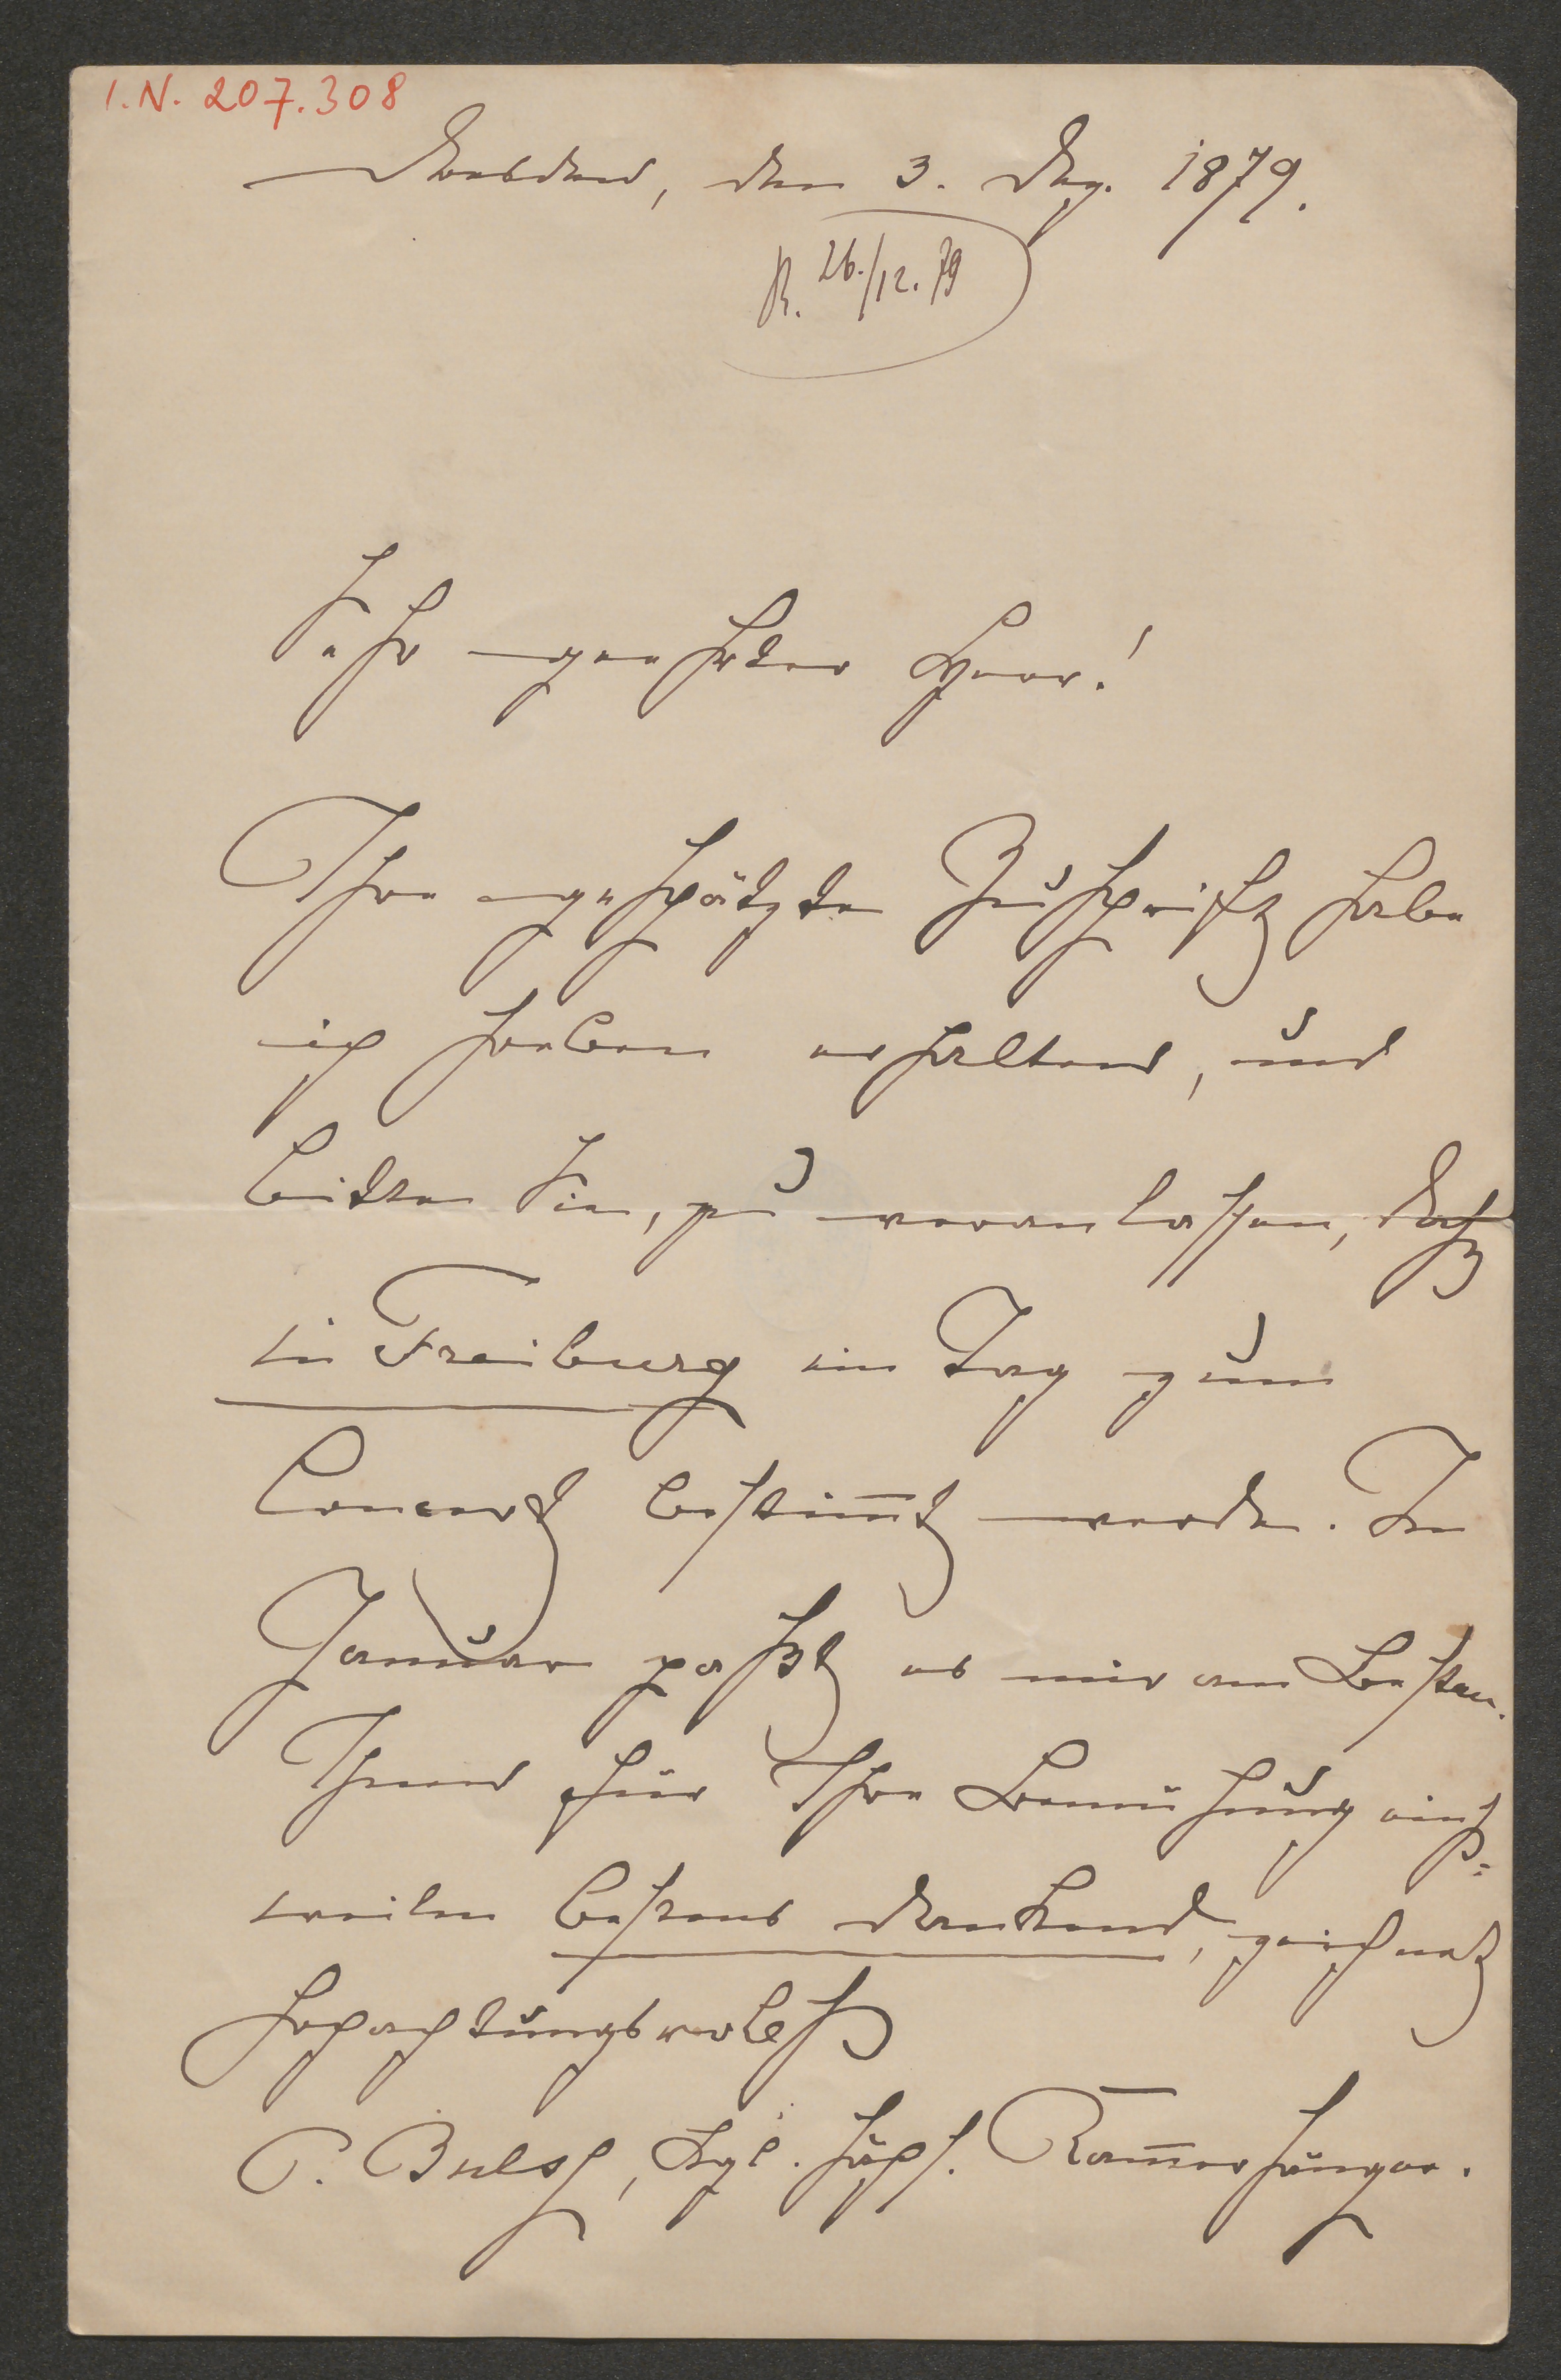 I.N. 207.308
Dresden, den 3. Dez. 1879.
R. 26./12. 79
Sehr geehrter Herr!
Ihre geschätzte Zuschrift habe
ich soeben erhalten, und
bitte Sie, zu veranlassen, daß
in Freiburg ein Tag zum
Concert bestim̅t werde. Im
Januar paßt es mir am Besten.
Ihnen für Ihre Bemühung einst=
weilen bestens dankend, zeichnet
hochachtungsvollst
P. Bulsz, Kgl. sächs. Kam̅ersänger.